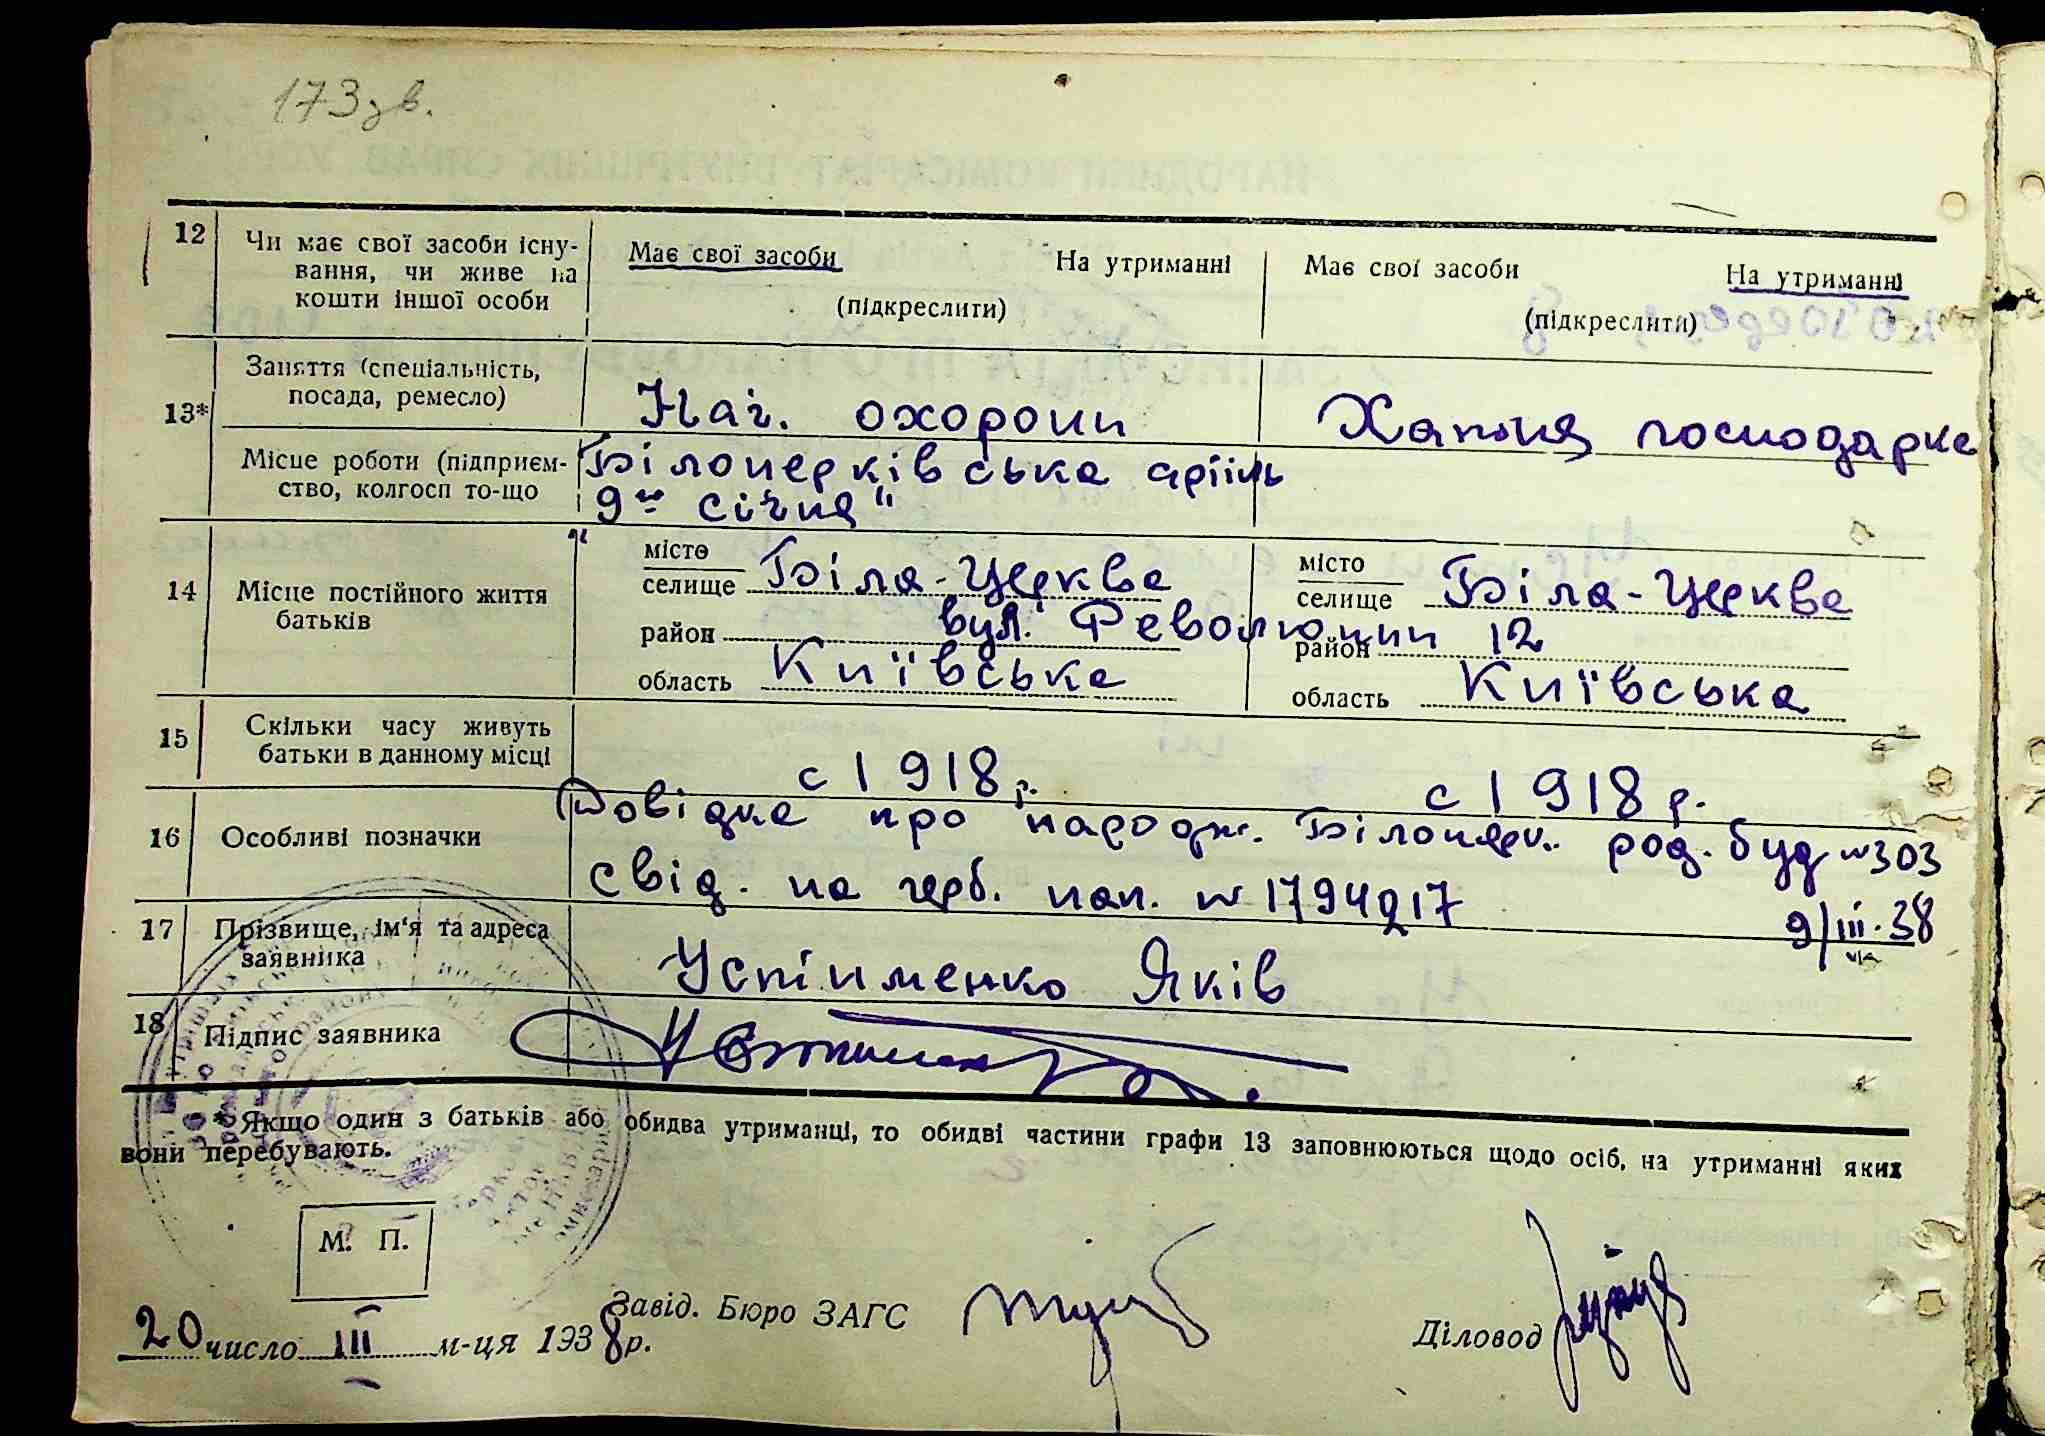 173 зв.
12 Чи має свої засоби існу-
вання, чи живе на
кошти іншої особи
Має свої засоби На утриманні
(підкреслити)
Має свої засоби На утриманні
(підкреслити)
13*
Заняття (спеціальність,
посада, ремесло)
Нач. охорони
Хатня господарка
Місце роботи (підприєм-
ство, колгосп то-що
Білоцерківська артіль
"9го січня"
14 Місце постійного життя
батьків
місто
селище Біла-Церква
район
вул. Революции 12
область Київська
місто
селище Біла-Церква
район
область Київська
15 Скільки часу живуть
батьки в данному місці
с 1918 р.
с 1918 р.
16 Особливі позначки
Довідка про народж. Білоцерк. род. буд №303
свід. на герб. пап. № 1794217
9/III.38
17 Прізвище, ім'я та адреса
заявника
Устіменко Яків
18 Підпис заявника
* Якщо один з батьків або обидва утриманці, то обидві частини графи 13 заповнюються щодо осіб, на утриманні яких
вони перебувають.
М. П.
20 число III м-ця 1938 р.
Завід. Бюро ЗАГС
Діловод